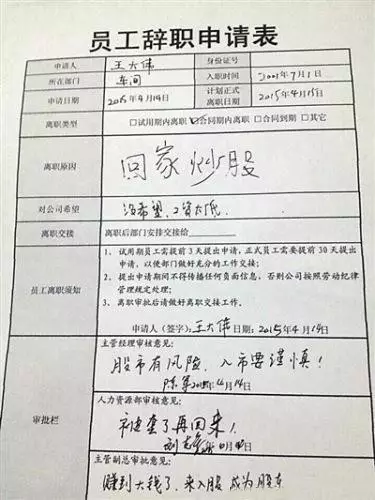 员工辞职申请表
申请人 王大伟 身份证号
所在部门 车间 入职时间 2001年7月1日
申请日期 2015年4月14日 计划正式离职日期 2015年4月15日
离职类型 □试用期内离职 ☑合同期内离职 □合同到期 □其它
离职原因 回家炒股
对公司希望 没希望,工资太低.
离职交接 离职后部门安排交接给
员工离职须知
1、试用期员工需提前3天提出申请,正式员工需要提前30天提出
申请,以便部门做好充分的工作交接;
2、提出申请期间不得传播任何负面信息,否则公司按照劳动纪律
管理规定处理;
3、离职审批后请做好离职交接工作。
申请人(签字):王大伟 日期:2015年4月14日
审批栏
主管经理审核意见:
股市有风险,入市要谨慎!
4月14日
人力资源部审核意见:
被套了再回来!
主管副总审批意见:
赚到大钱了,来入股 成为股东